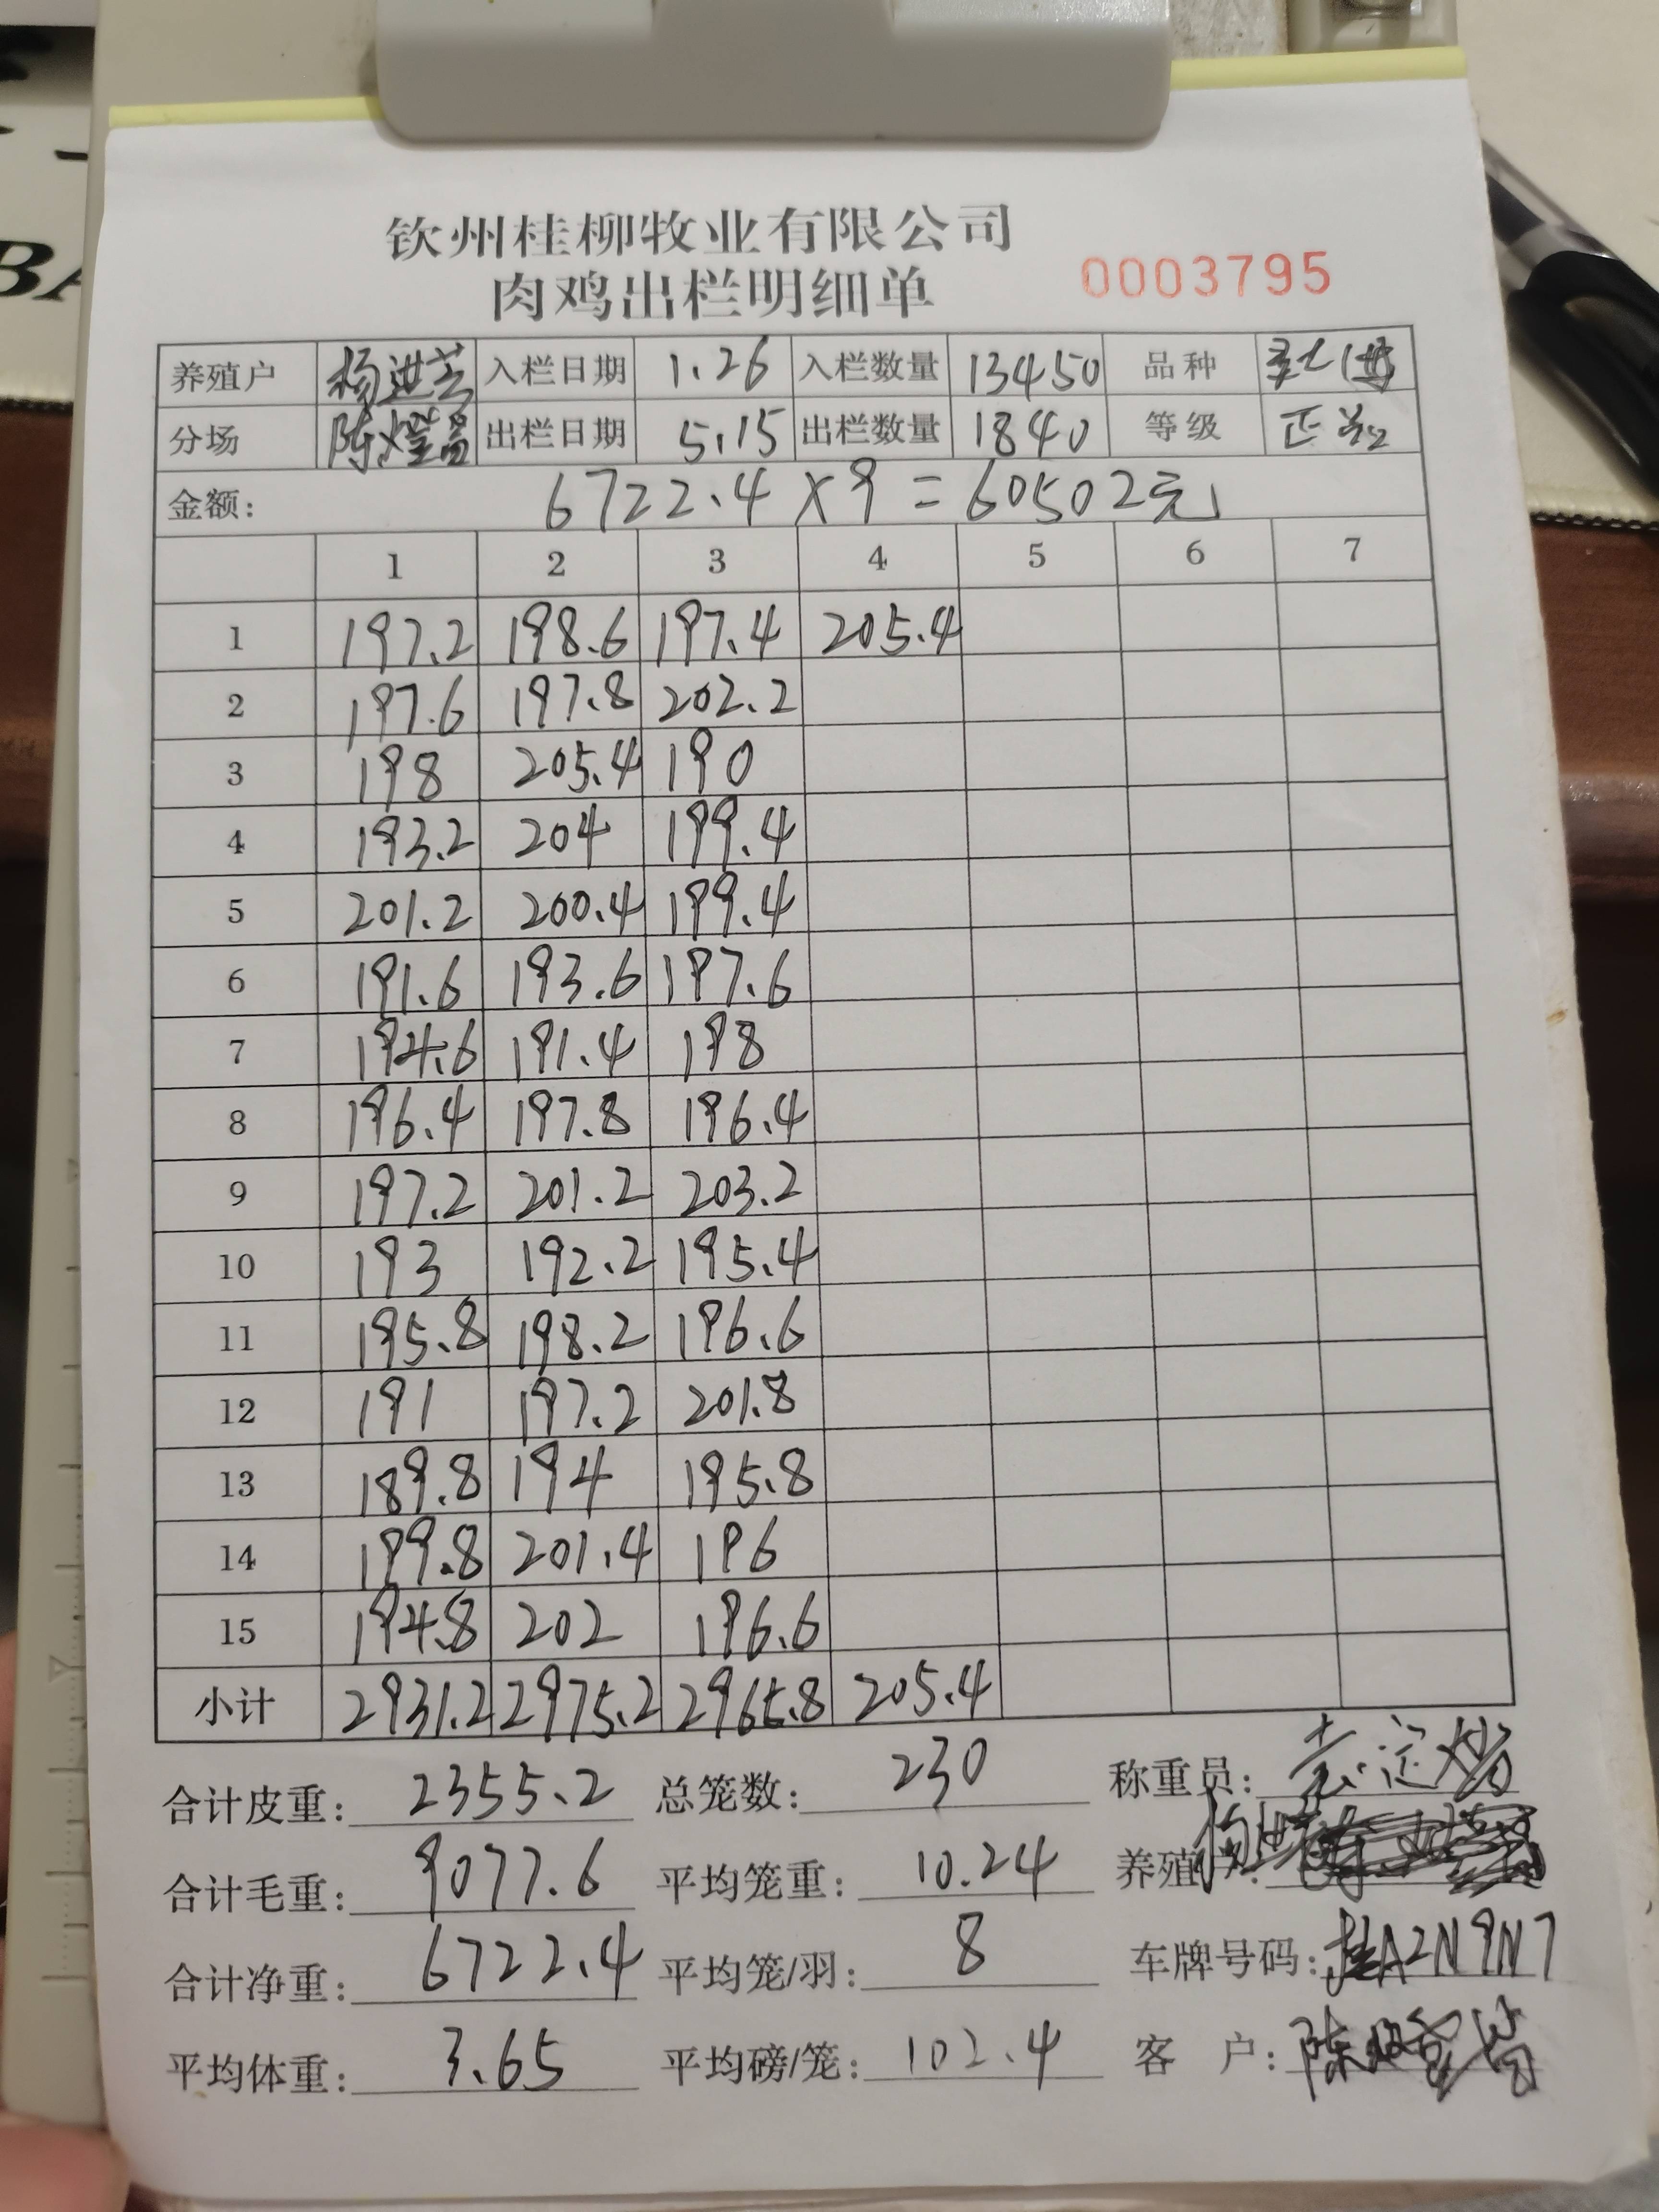 钦州桂柳牧业有限公司
肉鸡出栏明细单 0003795
养殖户 杨进芸 入栏日期 1.26 入栏数量 13450 品种
分场 陈煜富 出栏日期 5.15 出栏数量 1840 等级 正
金额: 6722.4×9=60502元
1 2 3 4 5 6 7
1 197.2 198.6 197.4 205.4
2 197.6 197.8 202.2
3 198 205.4 190
4 193.2 204 199.4
5 201.2 200.4 199.4
6 191.6 193.6 197.6
7 194.6 191.4 198
8 196.4 197.8 196.4
9 197.2 201.2 203.2
10 193 192.2 195.4
11 195.8 198.2 196.6
12 191 197.2 201.8
13 189.8 194 195.8
14 199.8 201.4 196
15 194.8 202 196.6
小计 2931.2 2975.2 2965.8 205.4
合计皮重: 2355.2 总笼数: 230 称重员:
合计毛重: 9077.6 平均笼重: 10.24 养殖
合计净重: 6722.4 平均笼/羽: 8 车牌号码: 桂A2N9N7
平均体重: 3.65 平均磅/笼: 102.4 客户: 陈